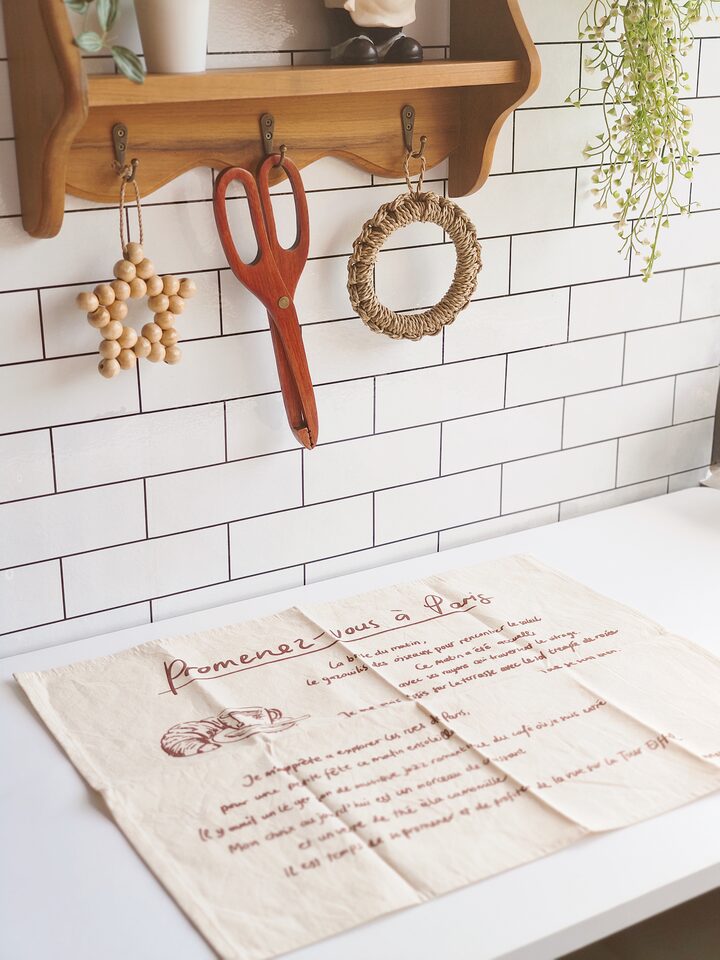 Promenez-vous à Paris
La brie du matin,
le gazouillis des oiseaux pour rencontrer le soleil
Ce matin a été accueilli
avec ses rayons qui traversent le vitrage
assis sur la terrasse avec le
Je me suis
Je m'apprête à explorer les rues de Paris,
pour une petite fête ce matin ensoleillé
Il y avait un léger son de musique jazz romantique du café où je suis
Mon choix aujourd'hui est un morceau de croissant
et un verre de thé à la camomille
Il est temps de se promener et de profiter de la vue sur la Tour Eiffel